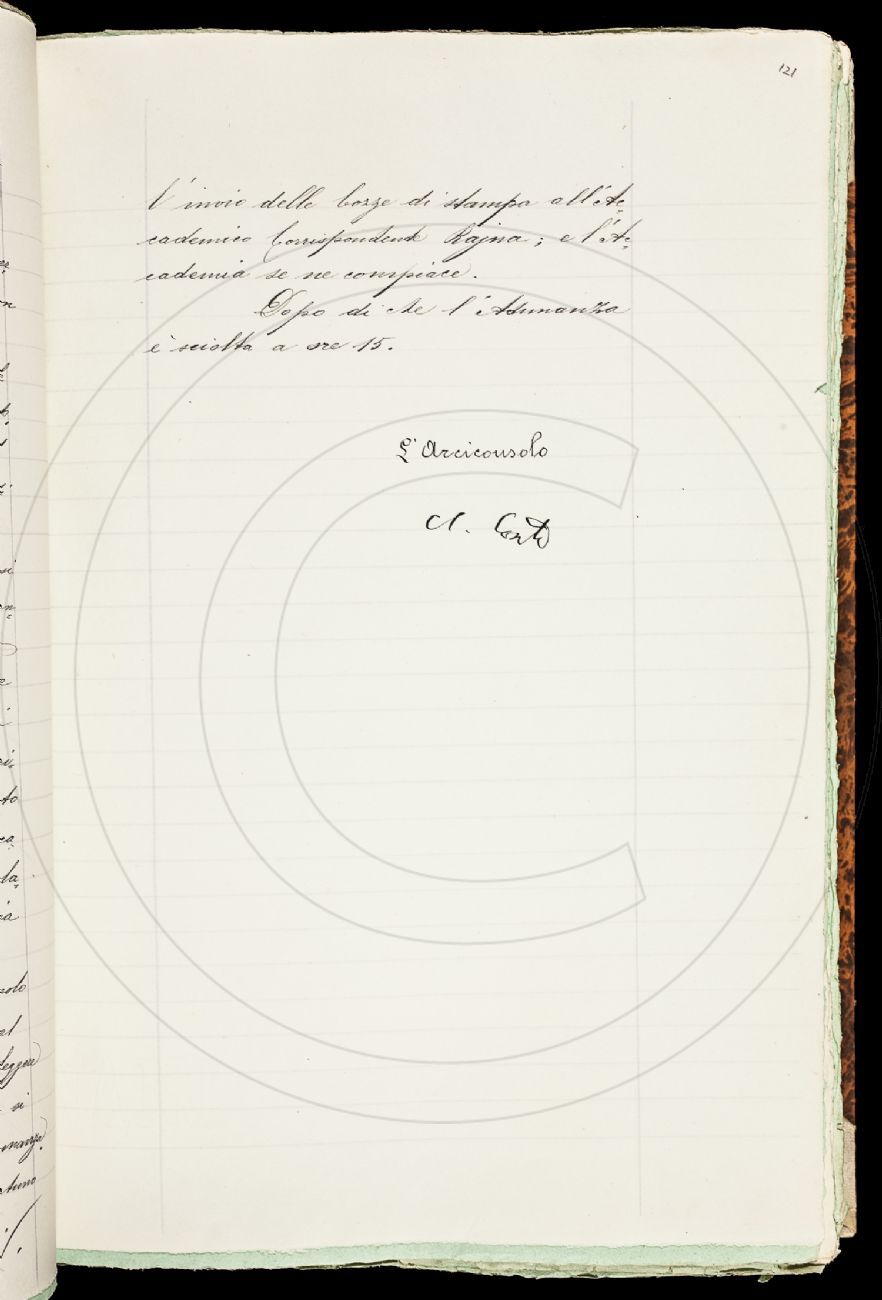 121
l'invio delle bozze di stampa all'Ac=
cademico Corrispondente Rajna; e l'Ac=
cademia se ne compiace.
Dopo di che l'Adunanza
è sciolta a ore 15.
L'Arciconsolo
A. Conti